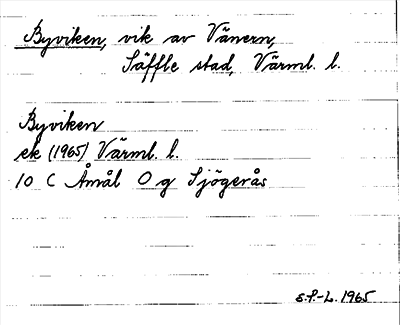 Byviken, vik av Vänern,
Säffle stad, Värml. l.
Byviken
ek (1965) Värml. l.
10 C Åmål O g Sjögerås
S.P.-L. 1965